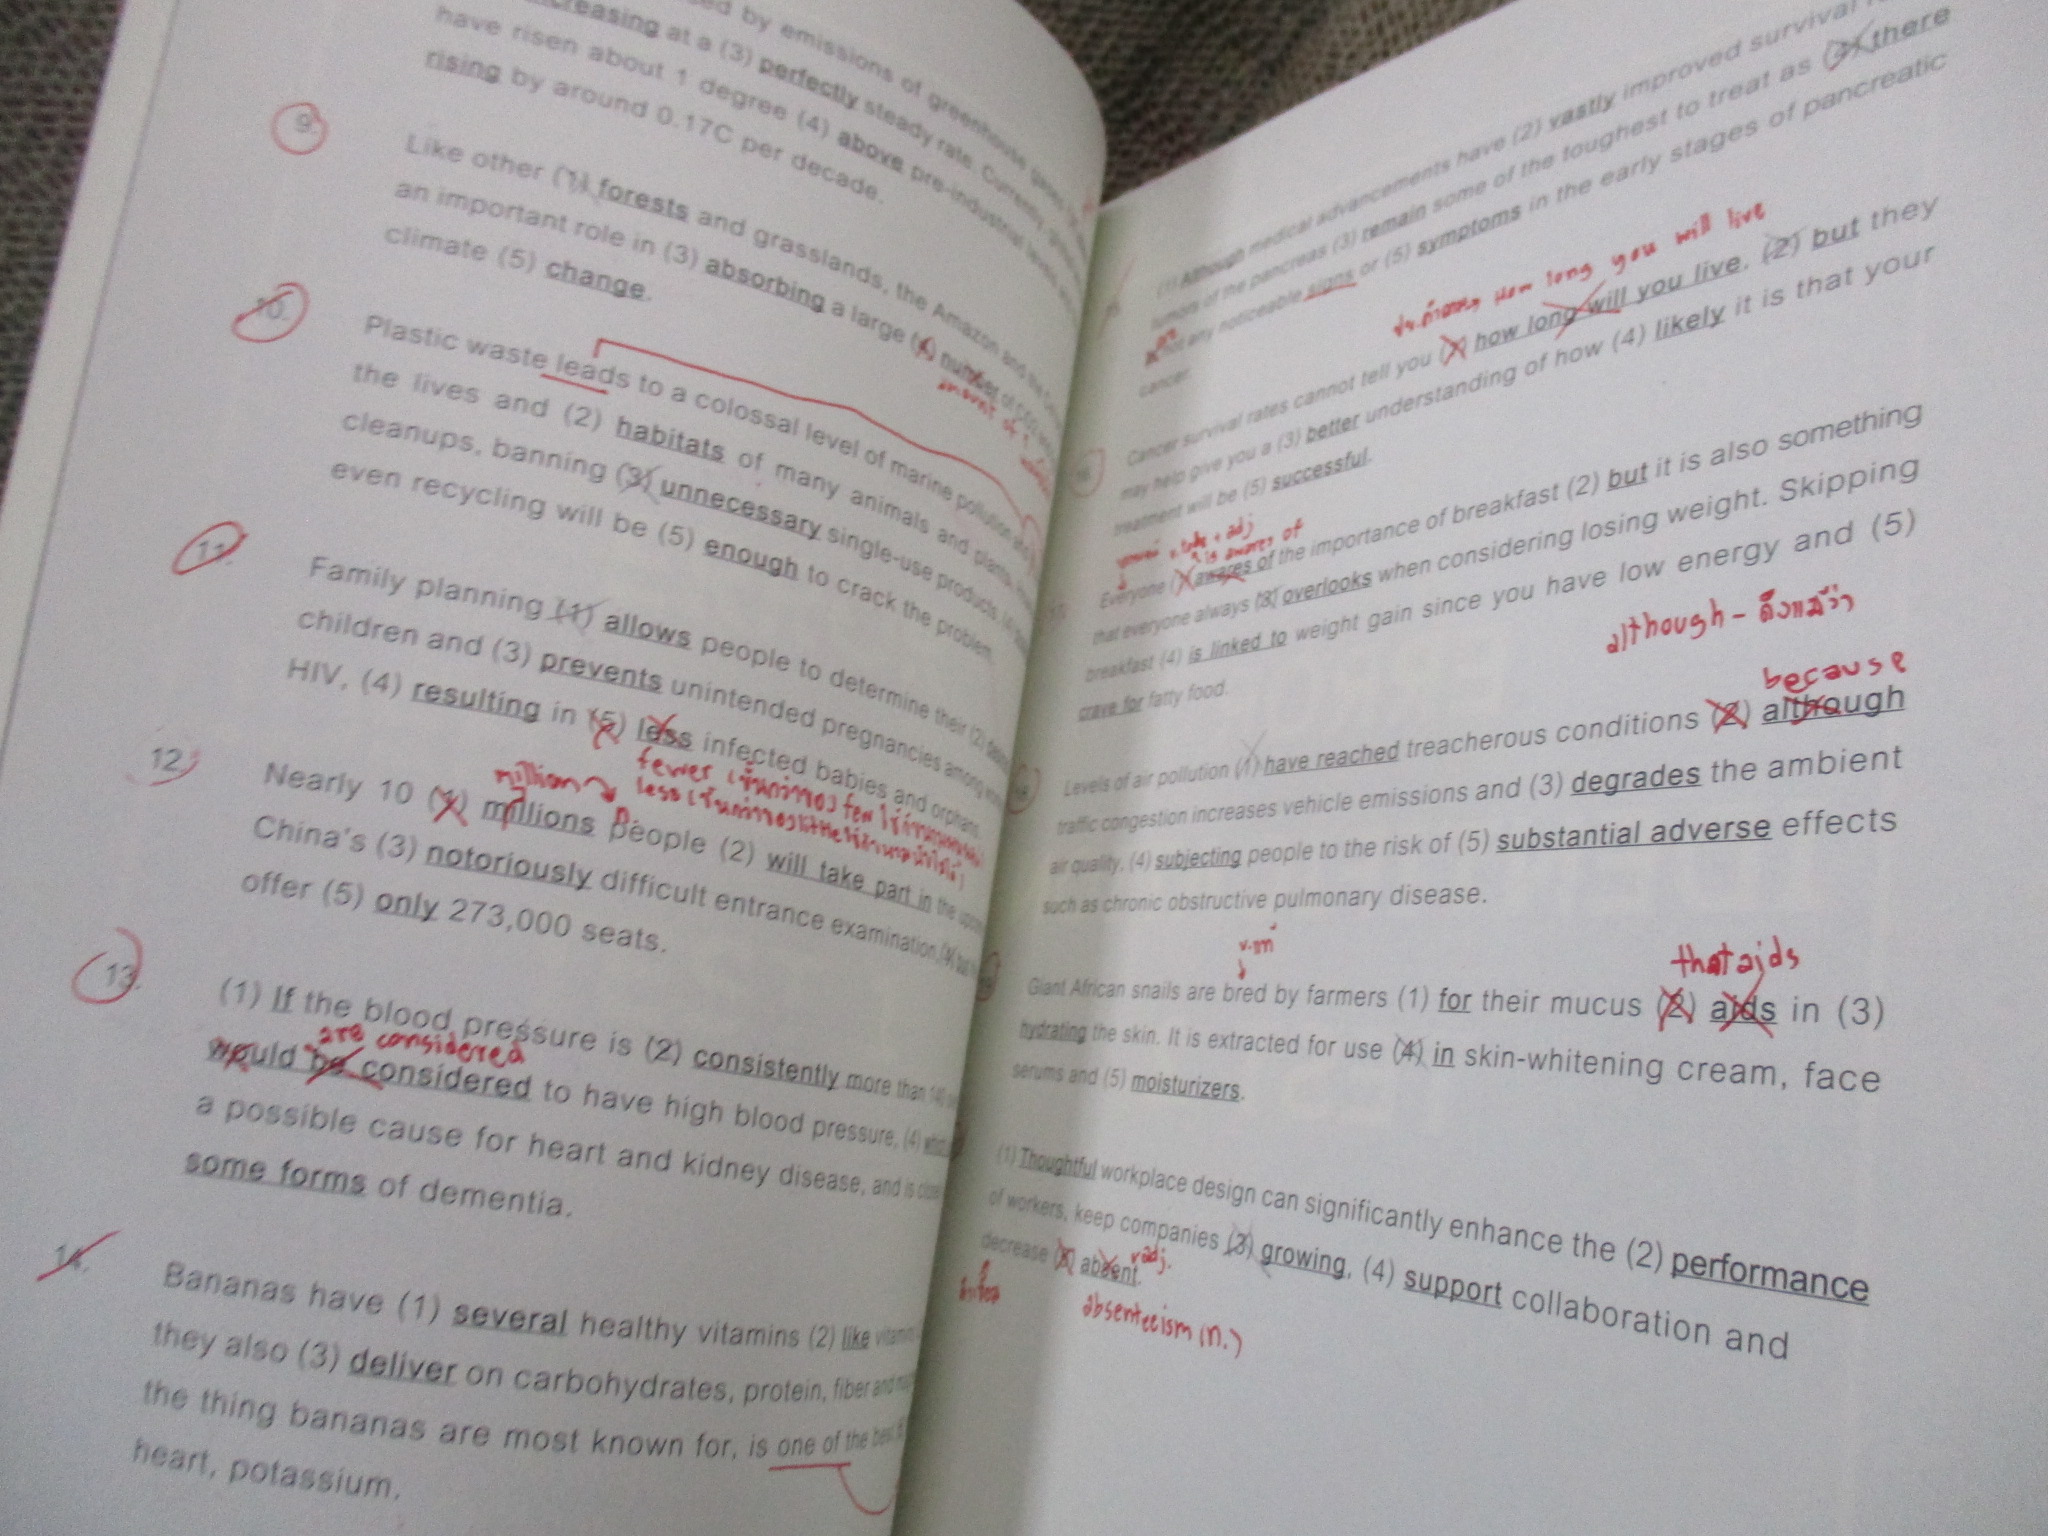 by emissions of greenhouse gases
increasing at a (3) perfectly steady rate. Currently,
have risen about 1 degree (4) above pre-industrial levels
rising by around 0.17C per decade.
9. Like other (1) forests and grasslands, the Amazon and the
an important role in (3) absorbing a large (4) number of CO2
amount of
climate (5) change.
10. Plastic waste leads to a colossal level of marine pollution
the lives and (2) habitats of many animals and plants.
cleanups, banning (3) unnecessary single-use products,
even recycling will be (5) enough to crack the problem.
11. Family planning (1) allows people to determine their (2)
children and (3) prevents unintended pregnancies among
HIV, (4) resulting in (5) less infected babies and orphans.
fewer
million
less
12. Nearly 10 (1) millions people (2) will take part in the
China's (3) notoriously difficult entrance examination, (4) but
offer (5) only 273,000 seats.
13. (1) If the blood pressure is (2) consistently more than 140
are considered
would be considered to have high blood pressure, (4) which
a possible cause for heart and kidney disease, and is
some forms of dementia.
14. Bananas have (1) several healthy vitamins (2) like vitamin
they also (3) deliver on carbohydrates, protein, fiber and
the thing bananas are most known for, is one of the best
heart, potassium.
(1) Although medical advancements have (2) vastly improved survival
tumors of the pancreas (3) remain some of the toughest to treat as (4) there
not any noticeable signs or (5) symptoms in the early stages of pancreatic
cancer.
how long you will live
Cancer survival rates cannot tell you (1) how long will you live, (2) but they
may help give you a (3) better understanding of how (4) likely it is that your
treatment will be (5) successful.
is aware of
Everyone (1) awares of the importance of breakfast (2) but it is also something
that everyone always (3) overlooks when considering losing weight. Skipping
breakfast (4) is linked to weight gain since you have low energy and (5)
crave for fatty food.
although - ถึงแม้ว่า
because
Levels of air pollution (1) have reached treacherous conditions (2) although
traffic congestion increases vehicle emissions and (3) degrades the ambient
air quality, (4) subjecting people to the risk of (5) substantial adverse effects
such as chronic obstructive pulmonary disease.
that aids
Giant African snails are bred by farmers (1) for their mucus (2) aids in (3)
hydrating the skin. It is extracted for use (4) in skin-whitening cream, face
serums and (5) moisturizers.
(1) Thoughtful workplace design can significantly enhance the (2) performance
of workers, keep companies (3) growing, (4) support collaboration and
decrease (5) absent.
adj.
absenteeism (n.)